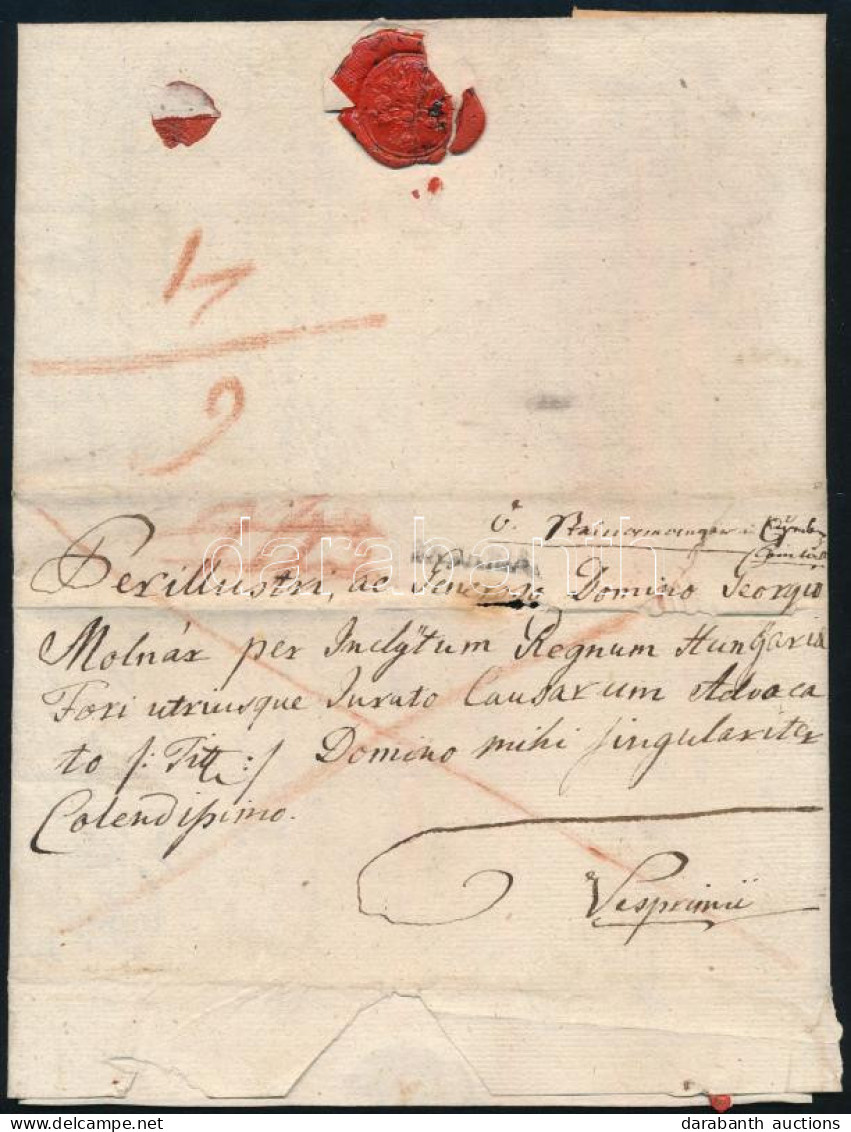 Perillustri, ac Generoso Domino Georgio
Molnár per Inclÿtum Regnum Hungaria
Fori utriusque Jurato Causarum Advoca
to /: Titt :/ Domino mihi singulariter
Colendissimo.
Vesprimii
darabanth
darabanth auctions